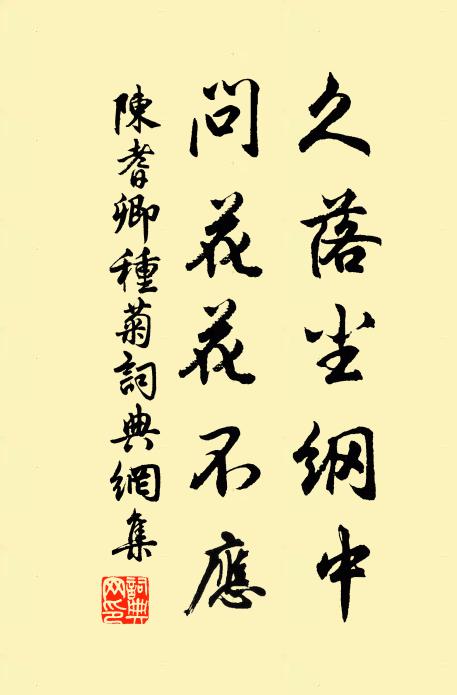 久落尘纲中
问花花不應
陳耆卿種菊詞典網集
詞典